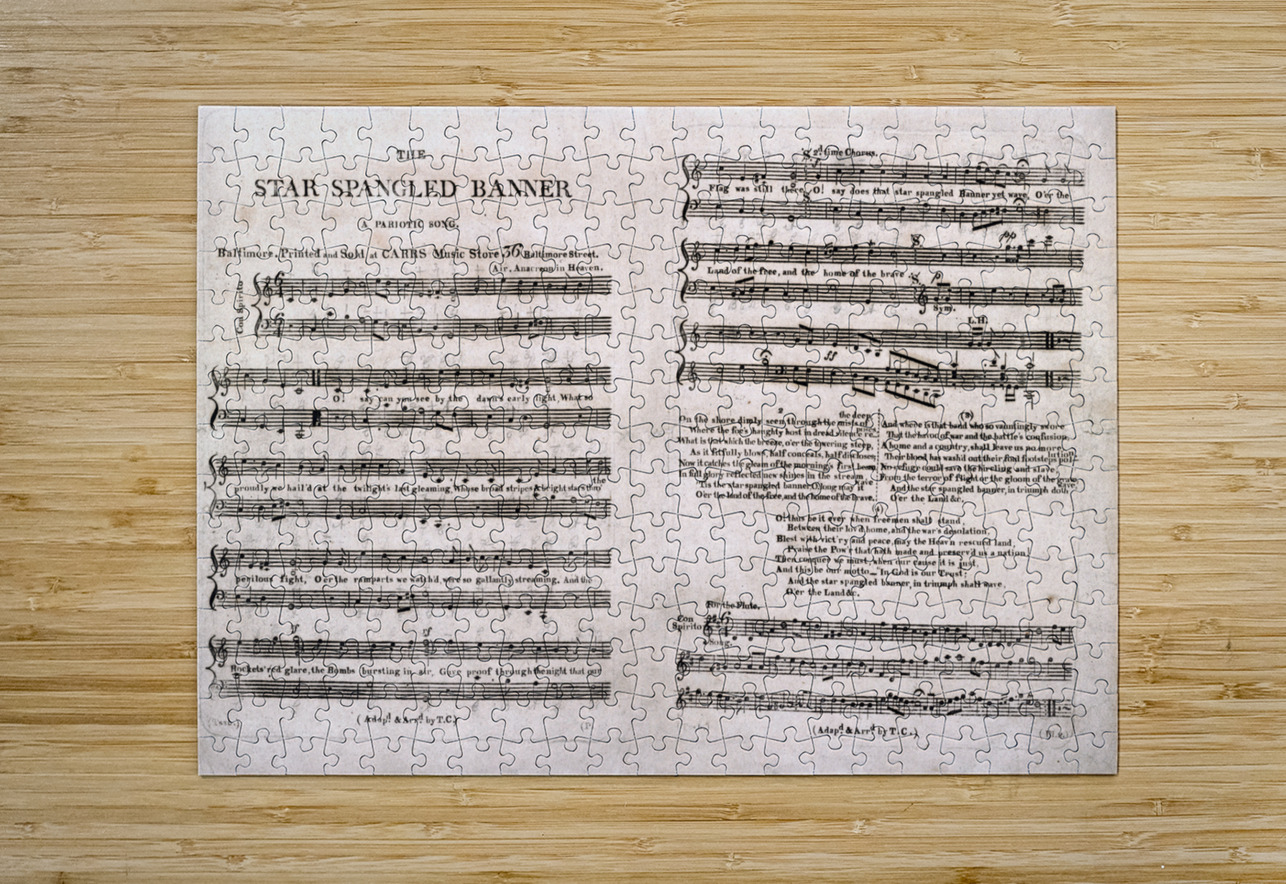 THE
STAR SPANGLED BANNER
A PARIOTIC SONG.
Baltimore. Printed and Sold at CARRS Music Store 36 Baltimore Street.
Air. Anacreon in Heaven.
Con Spirito
O! say can you see by the dawn's early light, What so
the
proudly we hail'd at the twilight's last gleaming, Whose broad stripes & bright stars
perilous fight, O'er the ramparts we watch'd, were so gallantly streaming, And the
Rockets' red glare, the Bombs bursting in air, Gave proof through the night that our
(Adap.d & Arr.d by T.C.)
2.d time Chorus.
Flag was still there O! say does that star spangled Banner yet wave, O'er the
pp
Land of the free, and the home of the brave
p
Sym.
L.H.
ff
2
On the shore dimly seen through the mists of the deep,
Where the foe's haughty host in dread silence
What is that which the breeze, o'er the towering steep,
As it fitfully blows, half conceals, half discloses,
Now it catches the gleam of the morning's first beam,
In full glory reflected new shines in the stream,
'Tis the star spangled banner, O! long may it wave
O'er the land of the free, and the home of the brave.
(3)
And where is that band who so vauntingly swore
That the havoc of war and the battle's confusion,
A home and a country, shall leave us no more,
Their blood has wash'd out their foul footsteps
No refuge could save the hireling and slave,
From the terror of flight or the gloom of the grave,
And the star spangled banner, in triumph doth wave,
O'er the Land &c.
(4)
O! thus be it ever when freemen shall stand,
Between their lov'd home, and the war's desolation,
Blest with vict'ry and peace, may the Heav'n rescued land,
Praise the Pow'r that hath made and preserv'd us a nation!
Then conquer we must, when our cause it is just,
And this be our motto_ In God is our Trust;
And the star spangled banner, in triumph shall wave,
O'er the Land &c.
For the Flute.
Con Spirito
(Adap.d & Arr.d by T.C.)